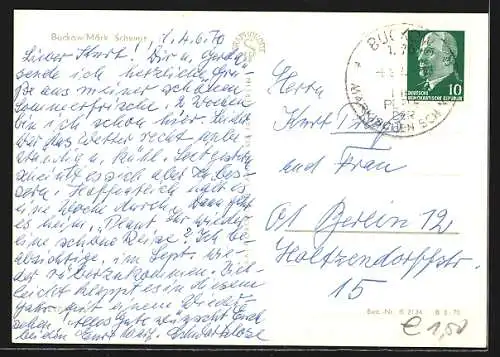 Buckow-Märk. Schweiz
4.6.70
Lieber Kurt! Dir u. Gerda
sende ich herzliche Grü-
ße aus meiner schönen
Sommerfrische. 2 Wochen
bin ich schon hier. Leider
war das Wetter recht unbe-
ständig u. kühl. Seit gestern
scheint es sich aber zu bes-
sern. Hoffentlich hält es
eine Woche durch. Dann geht
es heim. Plant Ihr wieder
eine schöne Reise? Ich be-
absichtige, im Sept. wie-
der rüberzukommen. Viel-
leicht klappt es in diesem
Jahr mit einem Wieder-
sehen. Alles Gute wünscht Euch
beiden Eure
BUCKOW
MÄRKISCHEN SCH
PERLE
DER
DEUTSCHE
DEMOKRATISCHE REPUBLIK
10
Herrn
Kurt
und Frau
Ost Berlin 12
Holtzendorffstr.
15
Best.-Nr. B 2134 B 3/70
€ 1,50